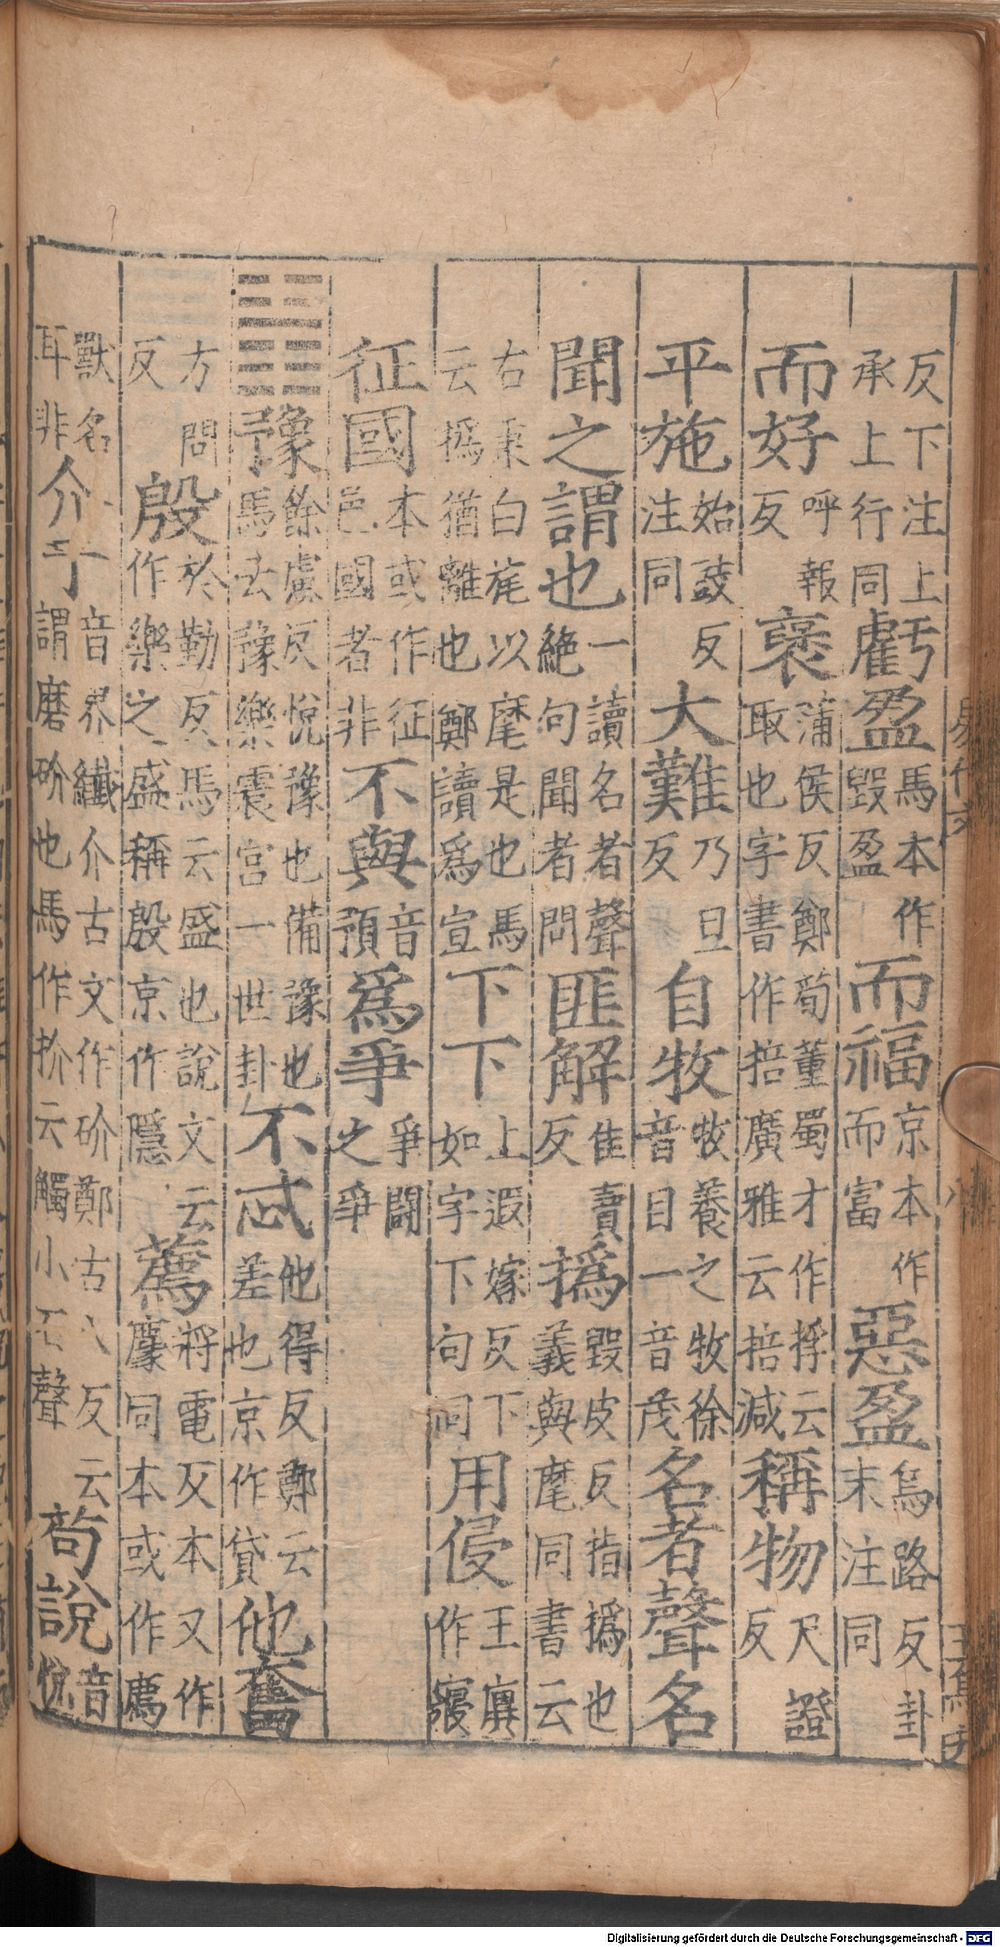 反下注上承上行同虧盈馬本作毀盈而福京本作而富惡盈烏路反卦末注同
而好呼報反裒蒲侯反鄭荀董蜀才作捊云取也字書作掊廣雅云掊減稱物尺證反
平施始豉反注同大難乃旦反自牧牧養之牧徐音目一音茂名者聲名
聞之謂也一讀名者聲絕句聞者問匪解佳賣反撝毀皮反指撝也義與麾同書云
右秉白旄以麾是也馬云撝猶離也鄭讀爲宣下下上遐嫁反下如字下句同用侵王廙作寢
征國本或作征邑國者非不與音預爲爭爭鬪之爭
豫餘慮反悅豫也備豫也馬云豫樂震宮一世卦不忒他得反鄭云差也京作貸他奮
方問反殷於勤反馬云盛也說文云作樂之盛稱殷京作隱薦將電反本又作同本或作廌
獸名耳非介于音界纖介古文作砎鄭古八反云謂磨砎也馬作扴云觸小石聲苟說音悅
八
Digitalisierung gefördert durch die Deutsche Forschungsgemeinschaft - DFG